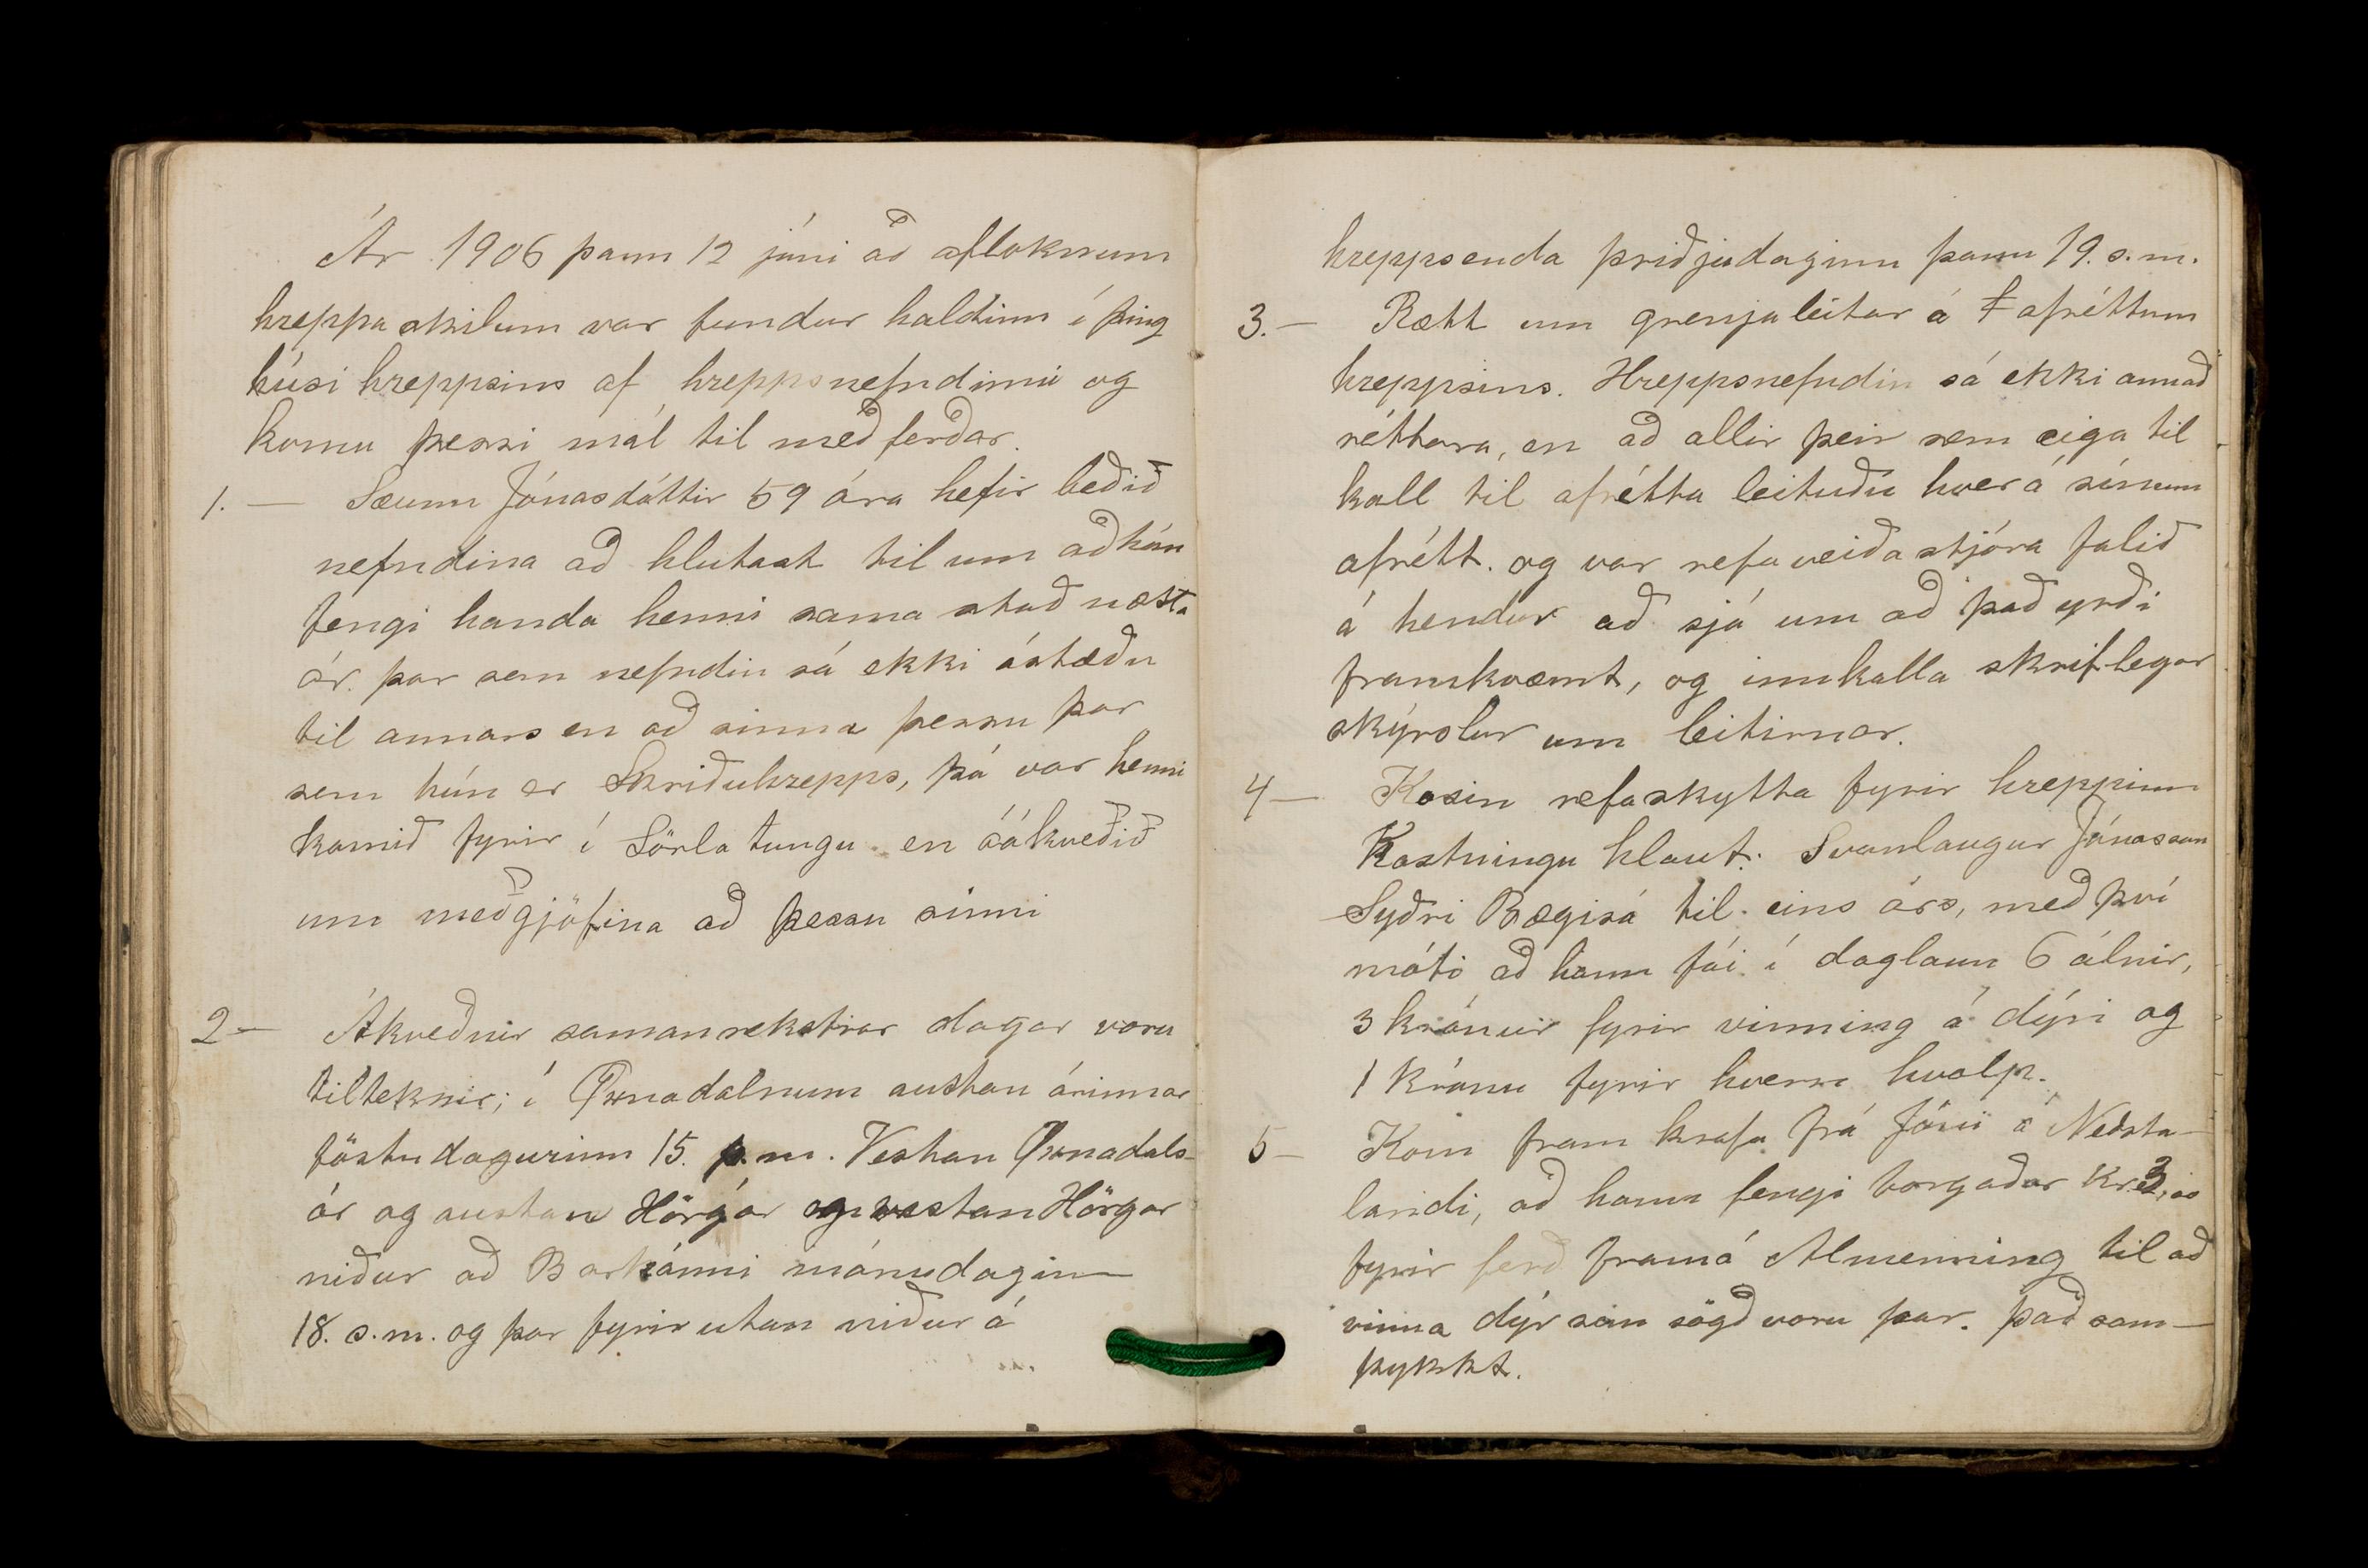 Ár 1906 þann 12 júni að afloknum
hreppaskilum var fundur haldinn í þing
húsi hreppsins af hreppsnefndinni og
komu þessi mál til með ferðar.
1. — Sæunn Jónasdóttir 59 ára hefir beðið
nefndina að hlutast til um að hún
fengi handa henni sama stað næsta
ár. þar sem nefndin sá ekki ástæðu
til annars en að sinna þessu þar
sem hún er Skriðuhrepps, þá var henni
komið fyrir í Sörla tungu en óákveðið
um meðgjöfina að þessu sinni
2 — Ákveðnir samanrekstrar dagar voru
tilteknir; í Öxnadalnum austan árinnar
föstudagurinn 15. þ.m. Vestan Öxnadals-
ár og austan Hörgár og vestan Hörgar
niður að Barkánni mánudaginn
18. s.m. og þar fyrir utan niður á
hreppsenda þriðjudaginn þann 19. s.m.
3. — Rætt um grenjaleitar á afréttum
hreppsins. Hreppsnefndin sá ekki annað
réttara, en að allir þeir sem eiga til
kall til afrétta leituðu hver á sínum
afrétt. og var refaveiðastjóra falið
á hendur að sjá um að það yrði
framkvæmt, og innkalla skriflegar
skýrslur um leitirnar.
4 — Kosin refaskytta fyrir hreppinn
Kostningu hlaut: Svanlaugur Jónasson
Syðri Bægisá til eins árs, með því
móti að hann fái í daglaun 6 álnir,
3 krónur fyrir vinning á dýri og
1 krónu fyrir hvern hvolp.
5 — Kom fram krafa frá Jóni á Neðsta-
landi, að hann fengi borgaðar Kr. 3,00
fyrir ferð framá Almenning til að
vinna dýr sem sögð voru þar. það sam-
þykkt.